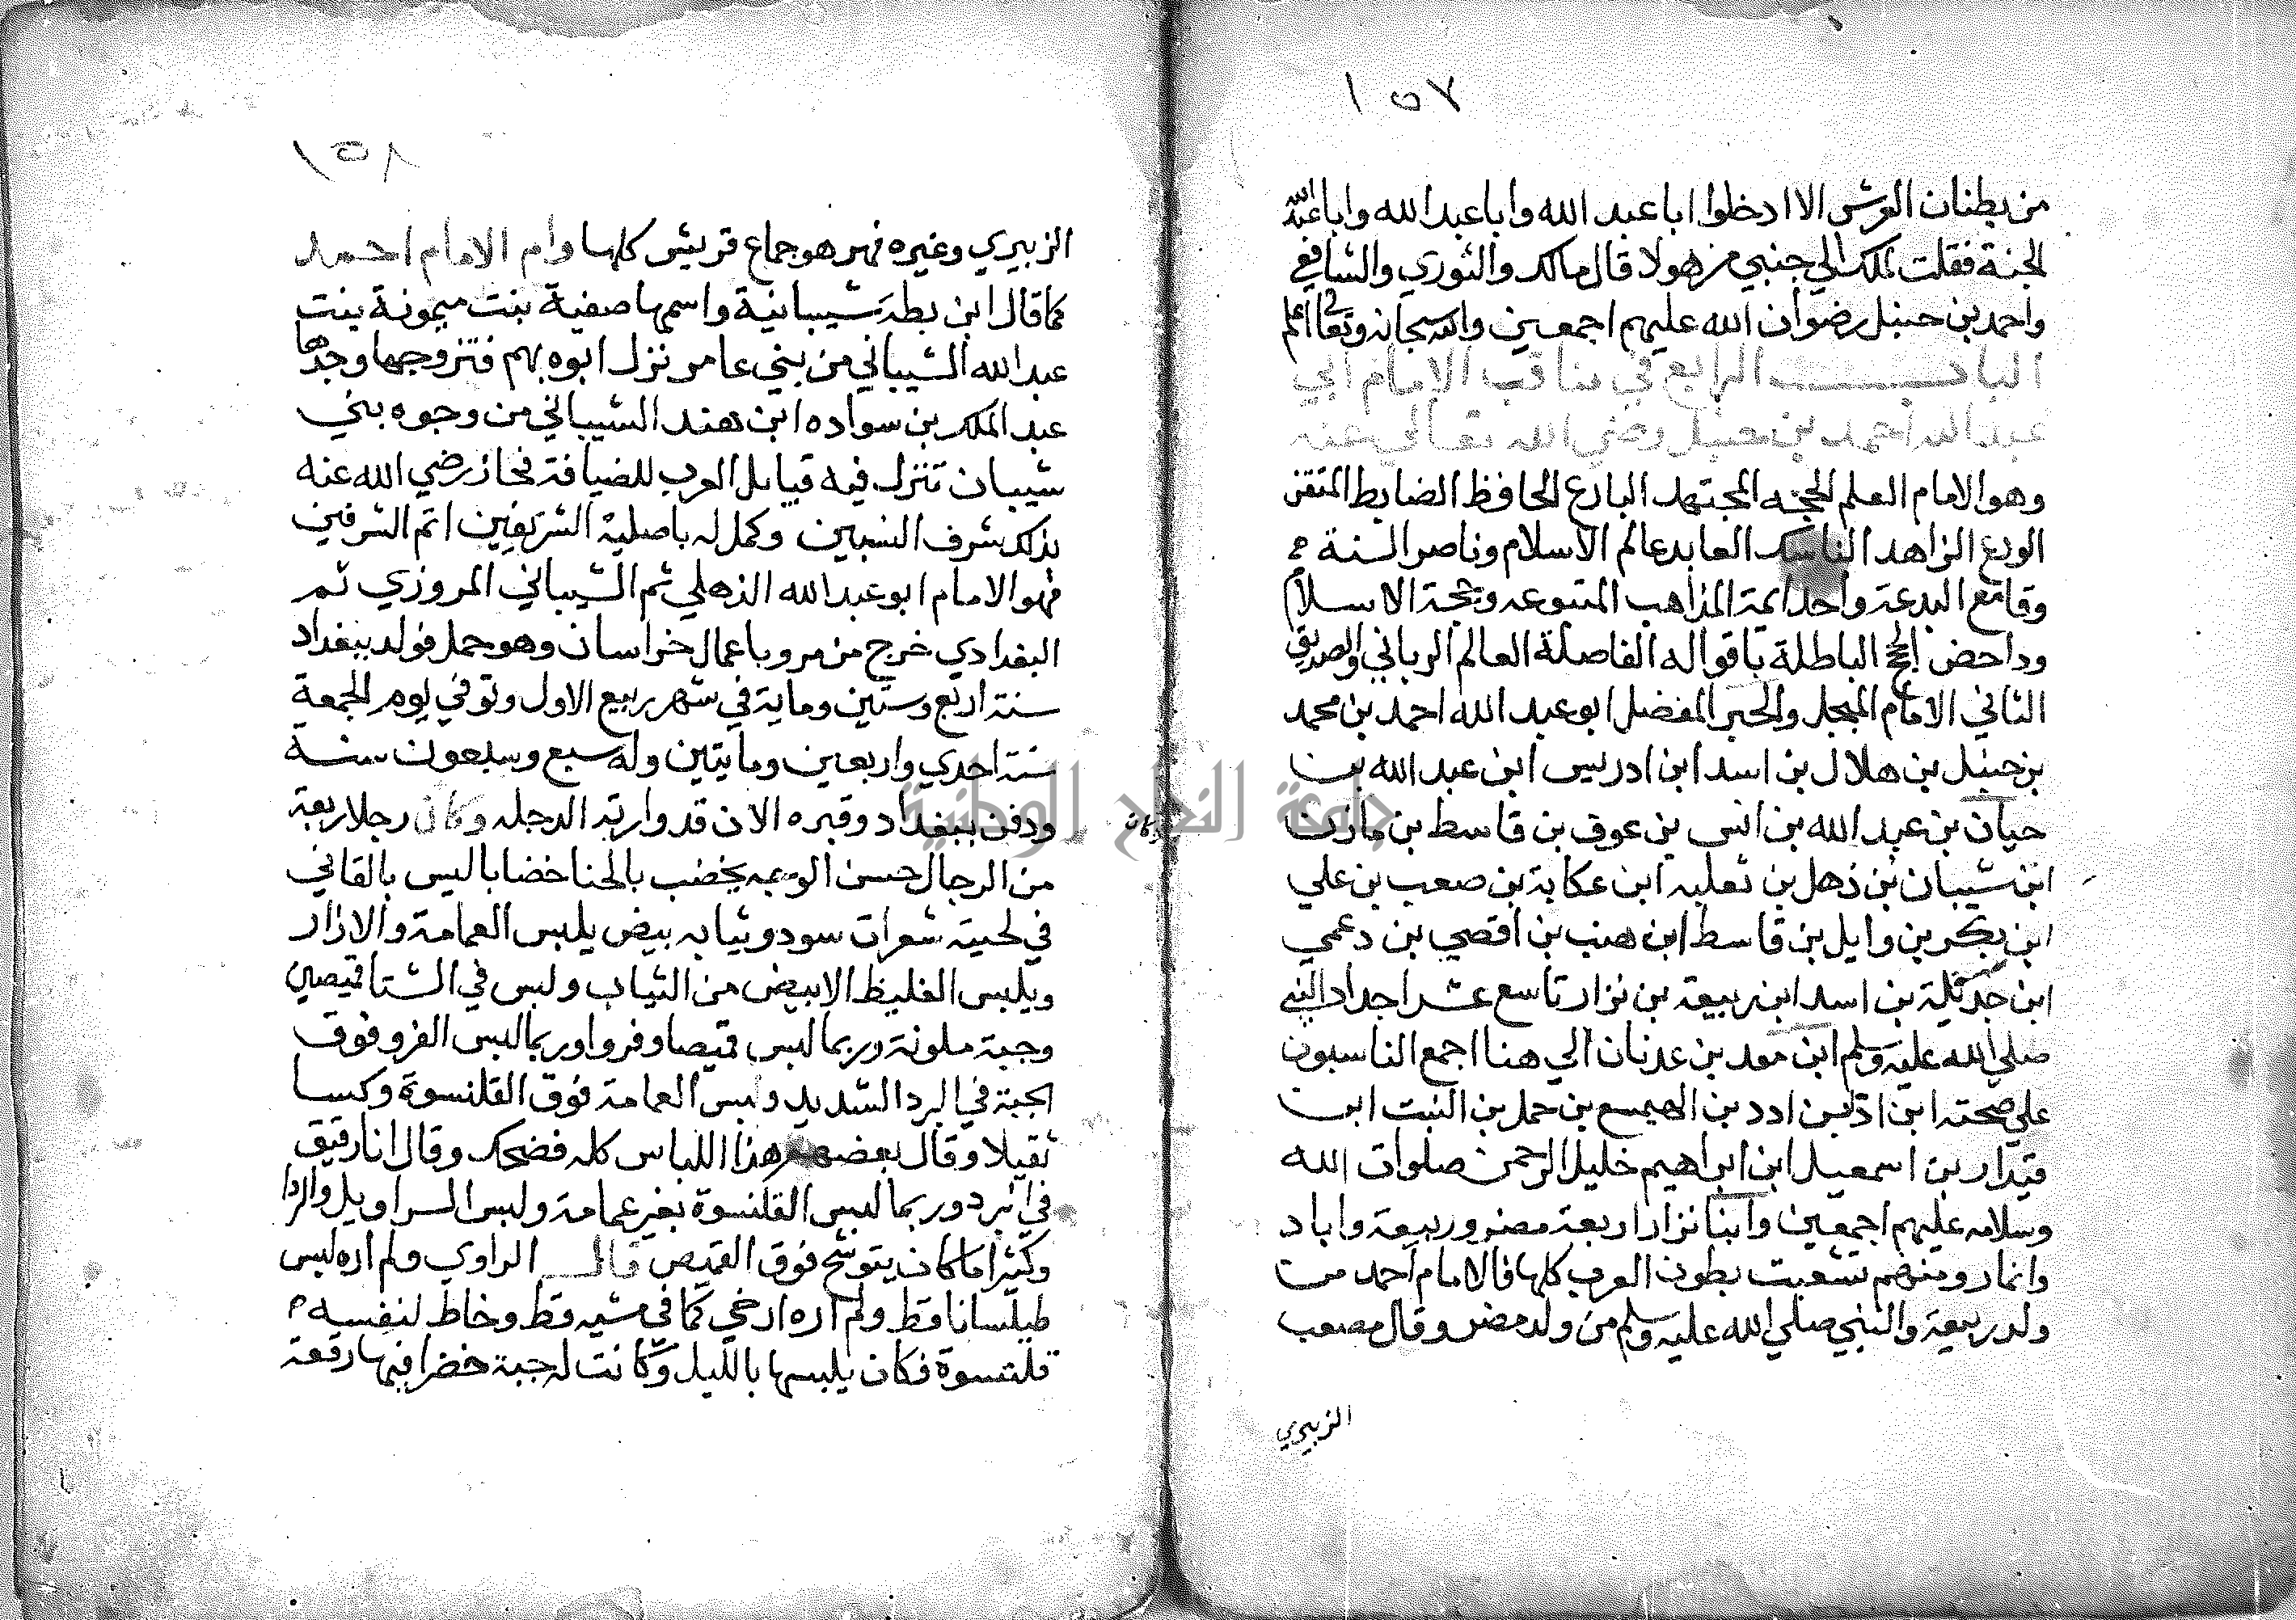 ١٥٧
من بطنان العرش الا ادخلوا ابا عبد الله وابا عبد الله وابا عبد الله
الجنة فقلت لملك الي جنبي من هولا قال مالك والثوري والشافعي
واحمد بن حنبل رضوان الله عليهم اجمعين والله سبحانه وتعالى اعلم
الباب الرابع في مناقب الامام ابي
عبد الله احمد بن حنبل رضي الله تعالى عنه
وهو الامام العلم الحجة المجتهد البارع الحافظ الضابط المتقن
الورع الزاهد الناسك العابد عالم الاسلام وناصر السنة
وقامع البدعة واحد ايمة المذاهب المتبوعه وحجة الاسلام
وداحض الحجج الباطلة باقواله الفاصلة العالم الرباني والصديق
الثاني الامام المبجل والحبر المفضل ابو عبد الله احمد بن محمد
بن حنبل بن هلال بن اسد ابن ادريس ابن عبد الله بن
حيان بن عبد الله بن انس بن عوف بن قاسط بن مازن
ابن شيبان بن ذهل بن ثعلبه ابن عكابة بن صعب بن علي
ابن بكر بن وايل بن قاسط ابن هنب بن اقصي بن دعمي
ابن جديلة بن اسد ابن ربيعة بن نزار تاسع عشر اجداد النبي
صلي الله عليه وسلم ابن معد بن عدنان الي هنا اجمع الناسبون
علي صحته ابن اد بن ادد بن الهميسع بن حمل بن النبت ابن
قيدار بن اسمعيل ابن ابراهيم خليل الرحمن صلوات الله
وسلامه عليهم اجمعين وابنا نزار اربعة مضر وربيعة واياد
وانمار ومنهم تشعبت بطون العرب كلها فالامام احمد من
ولد ربيعة والنبي صلي الله عليه وسلم من ولد مضر وقال مصعب
الزبيري
١٥٨
الزبيري وغيره فهر هو جماع قريش كلها وام الامام احمد
كما قال ابن بطه شيبانية واسمها صفية بنت ميمونة بنت
عبد الله الشيباني من بني عامر نزل ابوه بهم فتزوجها وجدها
عبد الملك بن سواده ابن هند الشيباني من وجوه بني
شيبان تنزل فيه قبايل العرب للضيافة فحاز رضي الله عنه
بذلك شرف النسبين وكمل له باصليه الشريفين اتم الشرفين
فهو الامام ابو عبد الله الذهلي ثم الشيباني المروزي ثم
البغدادي خرج من مرو باعمال خراسان وهو حمل فولد ببغداد
سنة اربع وستين وماية في شهر ربيع الاول وتوفي يوم الجمعة
سنة احدي واربعين ومايتين وله سبع وسبعون سنة
ودفن ببغداد وقبره الان قد وارته الدجله وكان رجلا ربعة
وكان
من الرجال حسن الوجه يخضب بالحنا خضابا ليس بالقاني
في لحيته شعرات سود وثيابه بيض يلبس العمامة والازار
ويلبس الغليظ الابيض من الثياب ولبس في الشتا قميصين
وجبة ملونة وربما لبس قميصا وفروا وربما لبس الفرو فوق
الجبة في البرد الشديد ولبس العمامة فوق القلنسوة وكسا
ثقيلا وقال بعضهم هذا اللباس كله فضحك وقال انا رقيق
في البرد وربما لبس القلنسوة بغير عمامة ولبس السراويل والردا
وكثيرا ما كان يتوشح فوق القميص قال الراوي ولم اره لبس
طيلسانا قط ولم اره ارخي كما في مشيه قط وخاط لنفسه
قلنسوة فكان يلبسها بالليل وكانت له جبة خضرا فيها رقعة
جامعة النجاح الوطنية